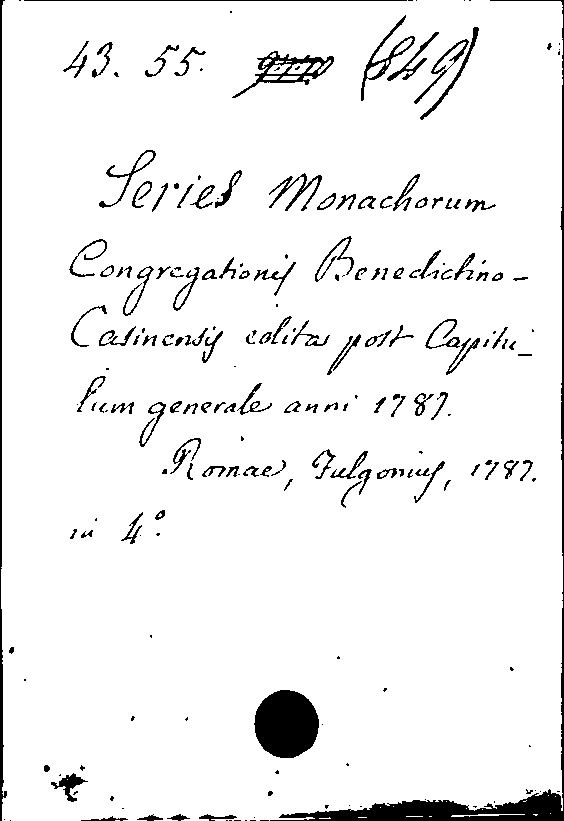 43. 55. (849)
Series Monachorum
Congregationis Benedictino-
Casinensis edita post Capitu-
lum generale anni 1787.
Romae, Fulgonius, 1787.
in 4°.